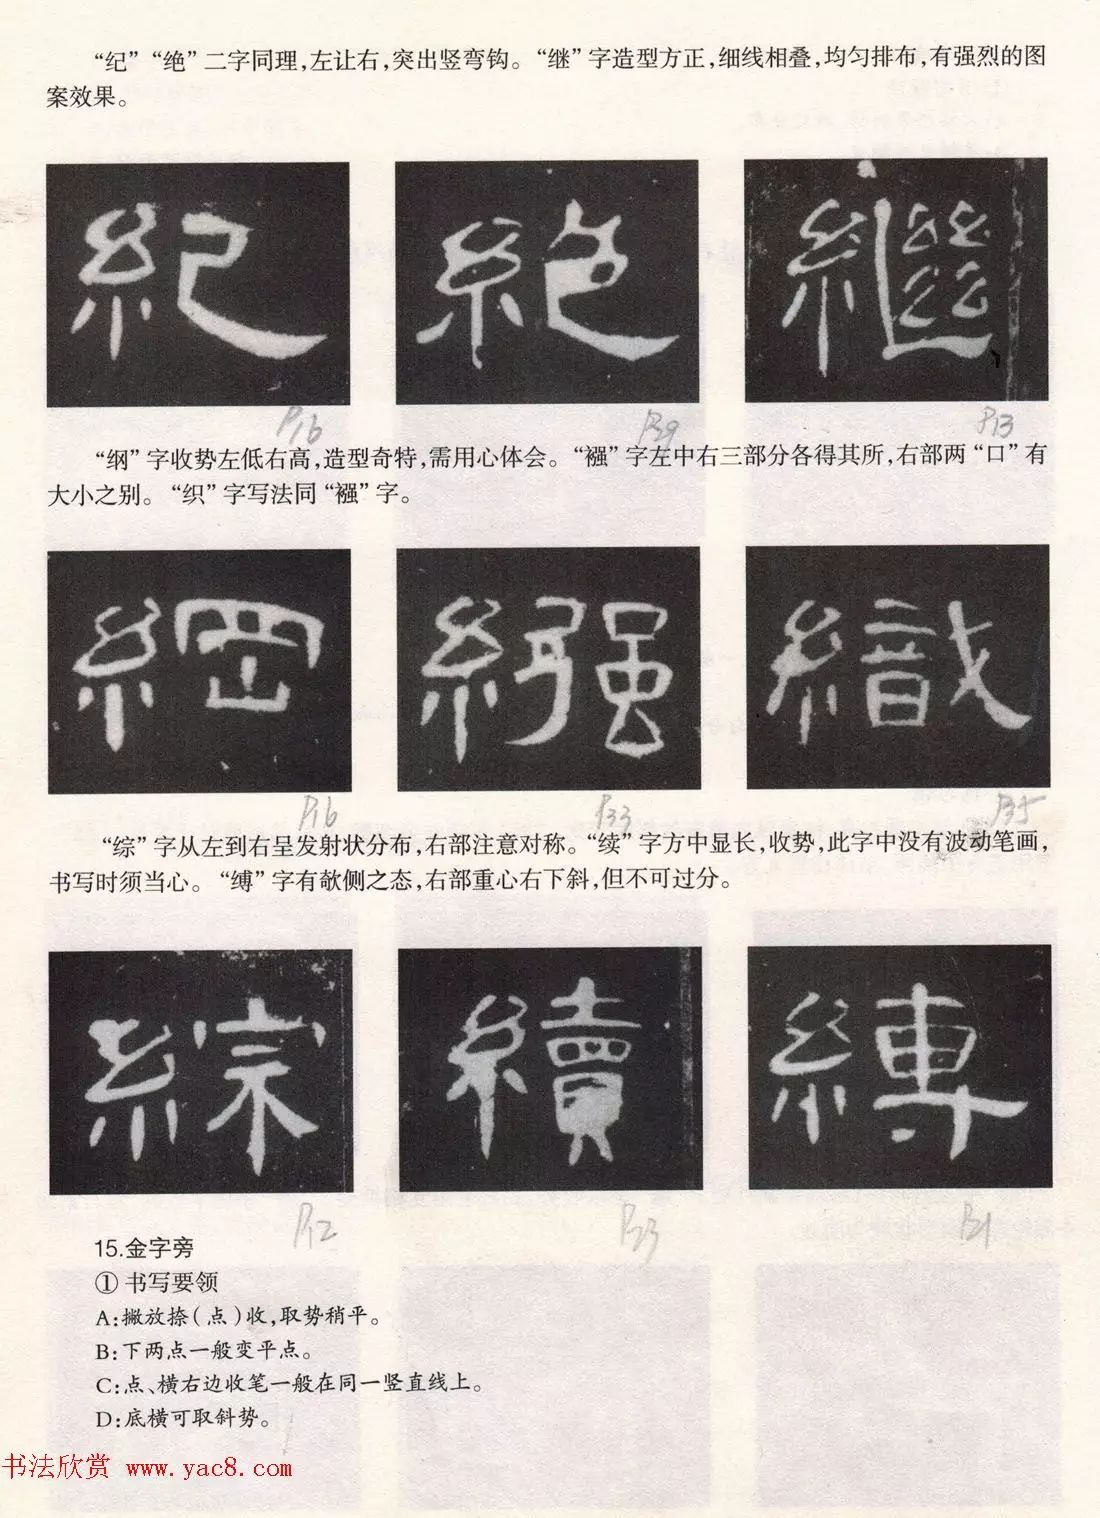 “纪”“绝”二字同理,左让右,突出竖弯钩。“继”字造型方正,细线相叠,均匀排布,有强烈的图
案效果。
紀 絶 繼
P16 P29 P13
“纲”字收势左低右高,造型奇特,需用心体会。“襁”字左中右三部分各得其所,右部两“口”有
大小之别。“织”字写法同“襁”字。
綱 繈 織
P16 P33 P35
“综”字从左到右呈发射状分布,右部注意对称。“续”字方中显长,收势,此字中没有波动笔画,
书写时须当心。“缚”字有欹侧之态,右部重心右下斜,但不可过分。
綜 續 縛
P12 P23 P21
15.金字旁
① 书写要领
A:撇放捺(点)收,取势稍平。
B:下两点一般变平点。
C:点、横右边收笔一般在同一竖直线上。
D:底横可取斜势。
书法欣赏 www.yac8.com